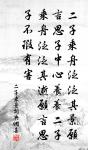 二子乘舟泛泛其景願
言思子中心養養二子
乘舟泛泛其逝願言思
子不瑕有害
二子乘舟